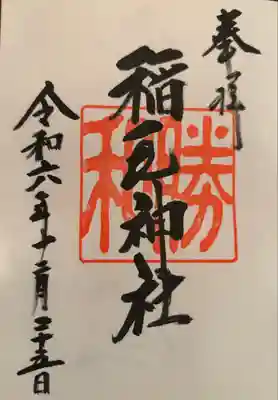 奉拝
稲毛神社
勝和
令和六年十二月二十五日